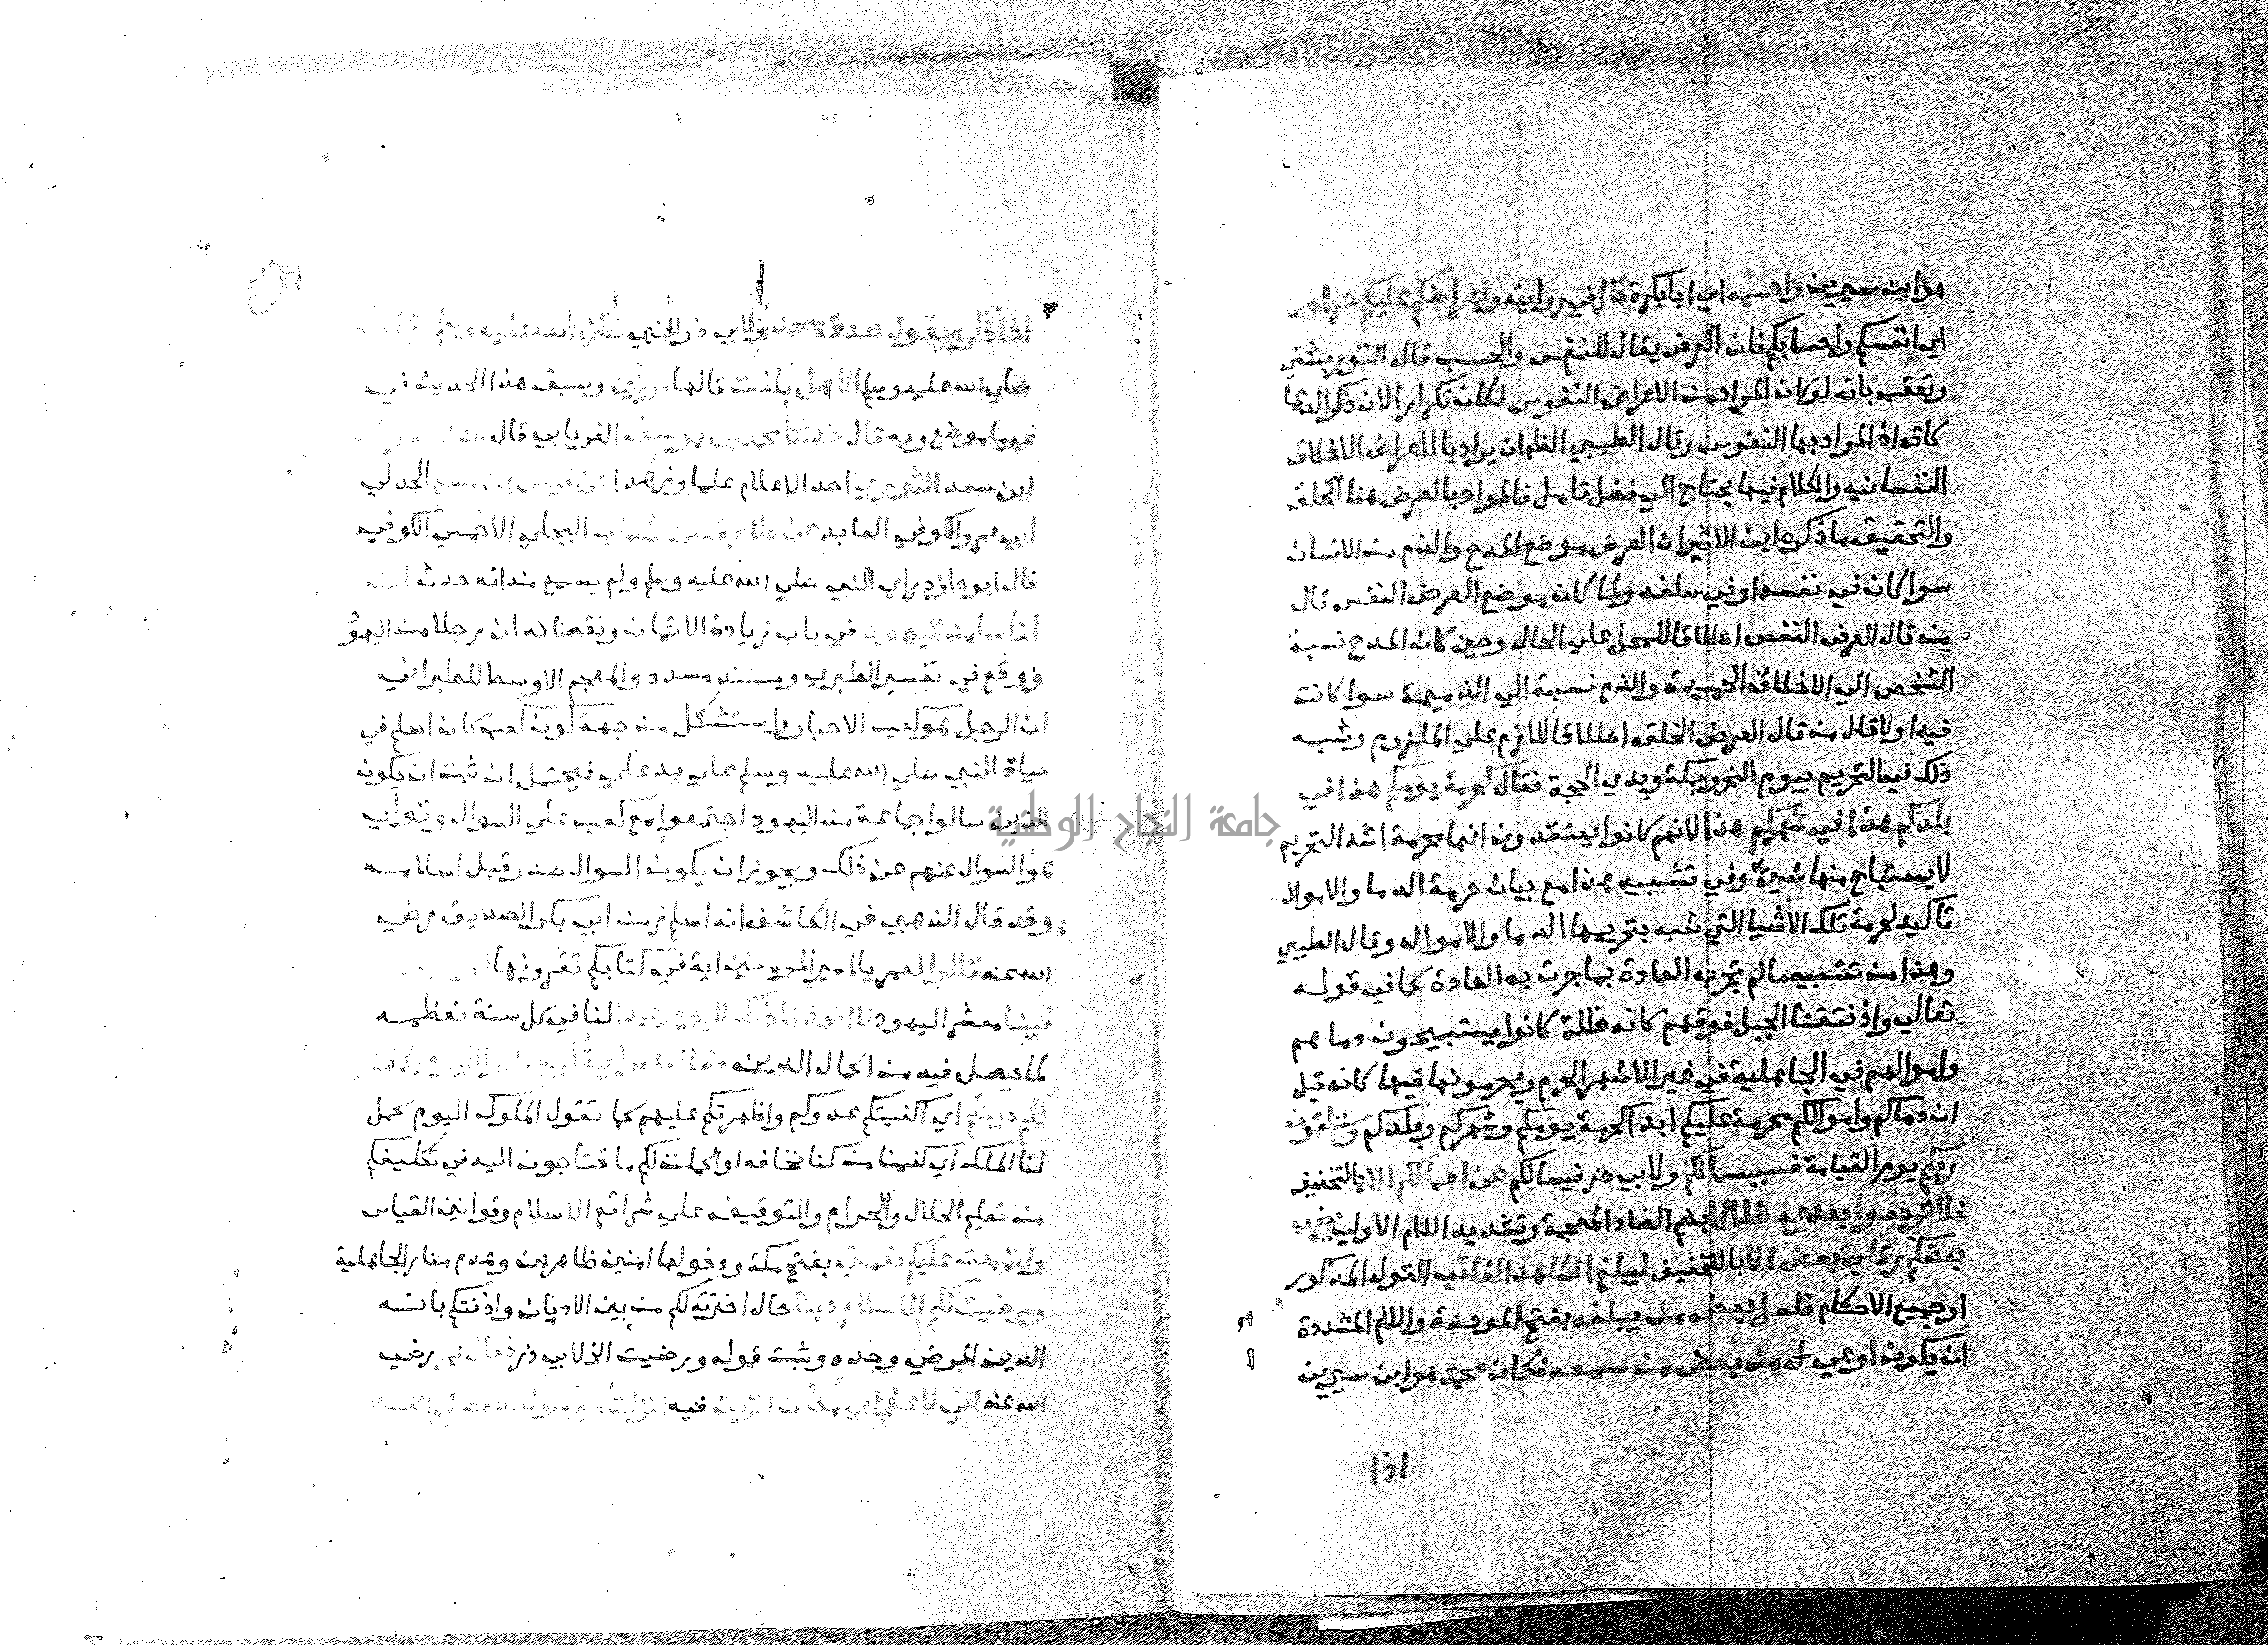 هو ابن سيرين واحسبه اي ابا بكرة قال في روايته واعراضكم عليكم حرام
اي انفسكم واحسابكم فان العرض يقال للنفس والحسب قاله التوربشتي
وتعقب بانه لو كان المراد من الاعراض النفوس لكان تكرارا لان ذكر الدما
كاف اذ المراد بها النفوس وقال الطيبي الظ ان يراد بالاعراض الاخلاق
النفسانيه والكلام فيها يحتاج الي فضل تامل فالمراد بالعرض هنا الخلق
والتحقيق ما ذكره ابن الاثير ان العرض موضع المدح والذم من الانسان
سوا كان في نفسه او في سلفه ولما كان موضع العرض النفس قال
من قال العرض النفس اطلاقا للمحل علي الحال وحين كان المدح نسبة
الشخص الي الاخلاق الحميدة والذم نسبة الي الذميمة سوا كانت
فيه او لا قال من قال العرض الخلق اطلاقا للازم علي الملزوم وشبه
ذلك في التحريم بيوم النحر وبمكة وبذي الحجة فقال كحرمة يومكم هذا في
بلدكم هذا في شهركم هذا لانهم كانوا يعتقدون انها محرمة اشد التحريم
لا يستباح منها شي وفي تشبيه هذا مع بيان حرمة الدما والاموال
تاكيد لحرمة تلك الاشيا التي شبه بتحريمها الدما والاموال وقال الطيبي
وهذا من تشبيه ما لم تجر به العادة بما جرت به العادة كما في قوله
تعالي واذ نتقنا الجبل فوقهم كانه ظلة كانوا يستبيحون دماهم
واموالهم في الجاهلية في غير الاشهر الحرم ويحرمونها فيها كانه قيل
ان دماكم واموالكم محرمة عليكم ابدا كحرمة يومكم وشهركم وبلدكم وستلقون
ربكم يوم القيامة فسيسالكم ولابي ذر فيسالكم عن اعمالكم الا بالتخفيف
فلا ترجعوا بعدي ضلالا بضم الضاد المعجمة وتشديد اللام الاولي يضرب
بعضكم رقاب بعض الا بالتخفيف ليبلغ الشاهد الغائب القول المذكور
او جميع الاحكام فلعل بعض من يبلغه بفتح الموحدة واللام المشددة
ان يكون اوعي له من بعض من سمعه فكان محمد هو ابن سيرين
اذا
اذا ذكره يقول صدق محمد ولابي ذر النبي صلي الله عليه وسلم
صلي الله عليه وسلم الا هل بلغت قالها مرتين وسبق هذا الحديث في
غير ما موضع وبه قال حدثنا محمد بن يوسف الفريابي قال
ابن سعد الثوري احد الاعلام علما وزهدا عن قيس بن مسلم الجدلي
ابي عمرو الكوفي العابد عن طارق بن شهاب البجلي الاحمسي الكوفي
قال ابو داود راي النبي صلي الله عليه وسلم ولم يسمع منه انه حدث ان
اناسا من اليهود في باب زيادة الايمان ونقصانه ان رجلا من اليهود
ووقع في تفسير الطبري ومسند مسدد والمعجم الاوسط للطبراني
ان الرجل هو كعب الاحبار واستشكل من جهة كون كعب كان اسلم في
حياة النبي صلي الله عليه وسلم علي يد علي فيحتمل ان ثبت ان يكون
الذين سالوا جماعة من اليهود اجتمعوا مع كعب علي السوال وتولي
هو السوال عنهم عن ذلك ويجوز ان يكون السوال صدر قبل اسلامه
وقد قال الذهبي في الكاشف انه اسلم زمن ابي بكر الصديق رضي
الله عنه قالوا لعمر يا امير المومنين اية في كتابكم تقرونها
فينا معشر اليهود لاتخذنا ذلك اليوم عيدا لنا في كل سنة نعظمه
لما حصل فيه من اكمال الدين فقال عمر اية اية فقالوا اليوم اكملت
لكم دينكم اي كفيتكم عدوكم واظهرتكم عليهم كما تقول الملوك اليوم كمل
لنا الملك اي كفينا من كنا نخافه او اكملت لكم ما تحتاجون اليه في تكليفكم
من تعليم الحلال والحرام والتوقيف علي شرائع الاسلام وقوانين القياس
واتممت عليكم نعمتي بفتح مكة ودخولها امنين ظاهرين وهدم منار الجاهلية
ورضيت لكم الاسلام دينا حال اخترته لكم من بين الاديان واذنتكم بانه
الدين المرضي وحده وثبت قوله ورضيت الخ لابي ذر فقال عمر رضي
الله عنه اني لاعلم اي مكان انزلت فيه انزلت ورسول الله صلي الله